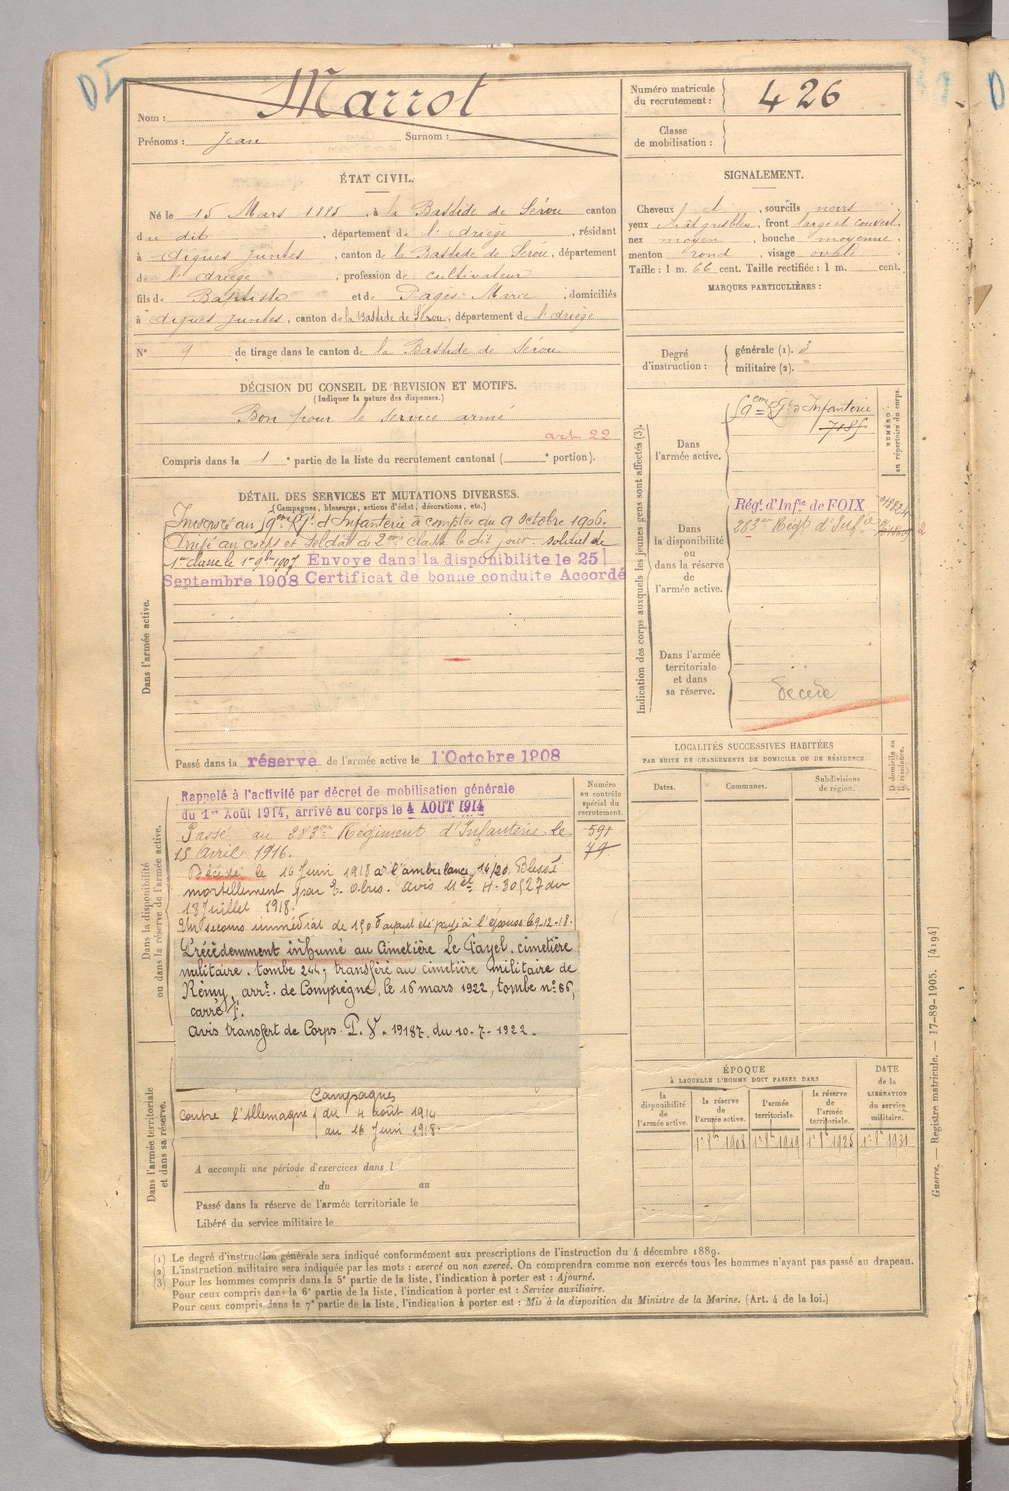 Nom : Marrot
Prénoms : Jean Surnom :
Numéro matricule du recrutement : 426
Classe de mobilisation :
ÉTAT CIVIL.
Né le 15 Mars 1885, à la Bastide de Sérou canton
du dit, département de l'Ariège, résidant
à Aigues Juntes, canton de la Bastide de Sérou, département
de l'Ariège, profession de cultivateur
fils de Baptiste et de Pagès Marie, domiciliés
à Aigues Juntes, canton de la Bastide de Sérou, département de l'Ariège
N° 9 de tirage dans le canton de la Bastide de Sérou
SIGNALEMENT.
Cheveux , sourcils noirs
yeux , front large et couvert
nez moyen, bouche moyenne,
menton rond, visage ovale
Taille : 1 m. 66 cent. Taille rectifiée : 1 m. cent.
MARQUES PARTICULIÈRES :
Degré d'instruction : générale (1). 3
militaire (2).
DÉCISION DU CONSEIL DE REVISION ET MOTIFS.
(Indiquer la nature des dispenses.)
Bon pour le service armé
art 22
Compris dans la 1e partie de la liste du recrutement cantonal (e portion).
DÉTAIL DES SERVICES ET MUTATIONS DIVERSES.
(Campagnes, blessures, actions d'éclat, décorations, etc.)
Dans l'armée active.
Incorporé au 59eme Rgt d'Infanterie à compter du 9 Octobre 1906.
Arrivé au corps et soldat de 2eme classe le dit jour. soldat de
1re classe le 1er 9bre 1907 Envoye dans la disponibilite le 25
Septembre 1908 Certificat de bonne conduite Accordé
Passé dans la réserve de l'armée active le 1 Octobre 1908
Indication des corps auxquels les jeunes gens sont affectés (3).
NUMÉRO au répertoire du corps.
Dans l'armée active.
59eme Rgt d'Infanterie
7185
Dans la disponibilité ou dans la réserve de l'armée active.
Régt d'Infie de FOIX
283e Régt d'Infie
Dans l'armée territoriale et dans sa réserve.
Décédé
Dans la disponibilité ou dans la réserve de l'armée active.
Numéro au contrôle spécial du recrutement.
Rappelé à l'activité par décret de mobilisation générale
du 1er Août 1914, arrivé au corps le 4 AOUT 1914
Passé au 283me Régiment d'Infanterie le
15 Avril 1916.
Décédé le 16 Juin 1918 à l'ambulance 16/20. Blessé
mortellement par E. obus. avis Mel H-30527 du
18 Juillet 1918.
Un secours immédiat de 150 f ayant été payé à l'épouse le 9-12-18.
Précédemment inhumé au Cimetière Le Fayel. cimetière
militaire. tombe 244, transféré au cimetière militaire de
Rémy, arrt. de Compiègne, le 16 mars 1922, tombe n° 66,
carré F.
Avis transfert de Corps. P.V. 19187. du 10-7-1922.
Dans l'armée territoriale et dans sa réserve.
Campagnes
contre l'Allemagne du 4 août 1914
au 16 Juin 1918.
A accompli une période d'exercices dans l
du au
Passé dans la réserve de l'armée territoriale le
Libéré du service militaire le
LOCALITÉS SUCCESSIVES HABITÉES
PAR SUITE DE CHANGEMENTS DE DOMICILE OU DE RÉSIDENCE.
Dates. Communes. Subdivisions de région. D domicile ou R résidence.
ÉPOQUE
À LAQUELLE L'HOMME DOIT PASSER DANS
la disponibilité de l'armée active. la réserve de l'armée active. l'armée territoriale. la réserve de l'armée territoriale.
DATE de la LIBÉRATION du service militaire.
1r 8bre 1908 1r 8bre 1919 1r 8bre 1925 1r 8bre 1931
(1) Le degré d'instruction générale sera indiqué conformément aux prescriptions de l'instruction du 4 décembre 1889.
(2) L'instruction militaire sera indiquée par les mots : exercé ou non exercé. On comprendra comme non exercés tous les hommes n'ayant pas passé au drapeau.
(3) Pour les hommes compris dans la 5e partie de la liste, l'indication à porter est : Ajourné.
Pour ceux compris dans la 6e partie de la liste, l'indication à porter est : Service auxiliaire.
Pour ceux compris dans la 7e partie de la liste, l'indication à porter est : Mis à la disposition du Ministre de la Marine. (Art. 4 de la loi.)
Guerre. — Registre matricule. — 17-89-1905. [4194]